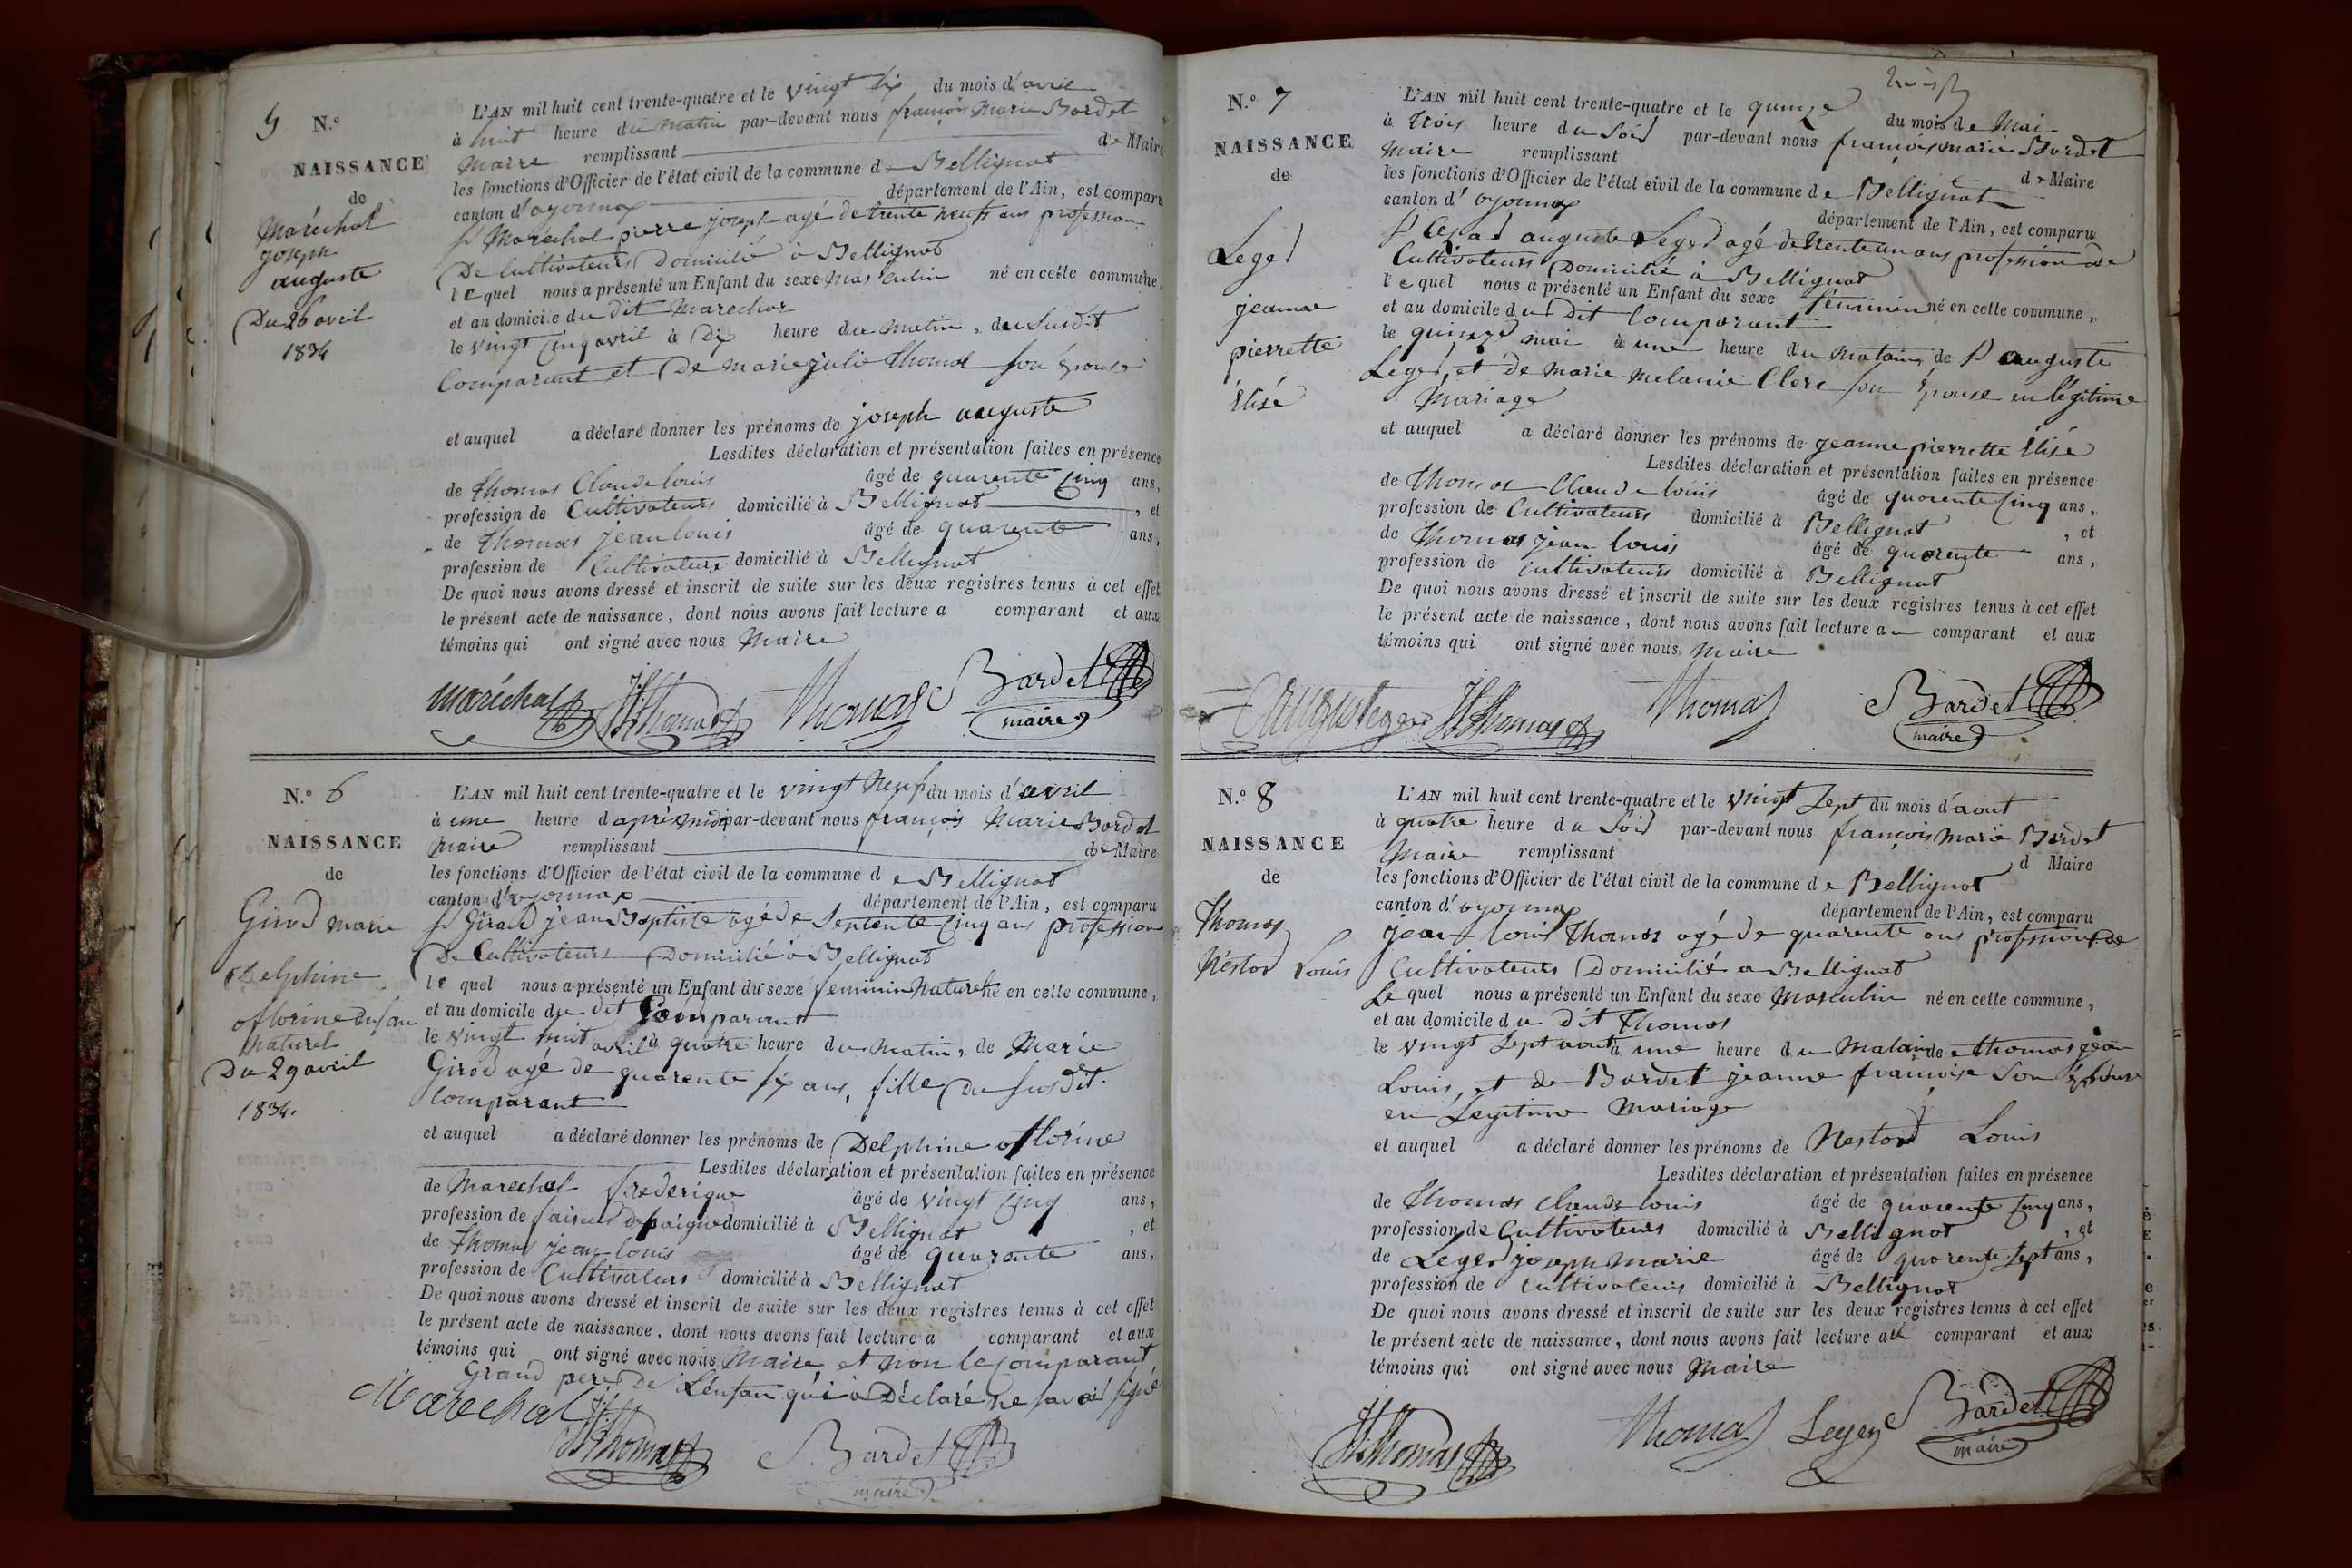 5 N.°
NAISSANCE
de
Maréchal
joseph
auguste
Du 26 avril
1834
L'AN mil huit cent trente-quatre et le vingt six du mois d'avril
à huit heure du matin par-devant nous françois Marie Bardet
Maire remplissant de Maire
les fonctions d'Officier de l'état civil de la commune de Bellignat
canton d'oyonnax département de l'Ain, est comparu
sr Maréchal pierre joseph agé de trente neuf ans profession
De Cultivateur Domicilié à Bellignat
lequel nous a présenté un Enfant du sexe Masculin né en cette commune,
et au domicile du dit Marechal
le vingt cinq avril à Dix heure du matin, du susdit
Comparant et De marie julie Thomas son épouse
et auquel a déclaré donner les prénoms de joseph auguste
Lesdites déclaration et présentation faites en présence
de Thomas Claude louis âgé de quarente cinq ans,
profession de Cultivateurs domicilié à Bellignat, et
de Thomas jean louis âgé de quarente ans,
profession de Cultivateurs domicilié à Bellignat
De quoi nous avons dressé et inscrit de suite sur les deux registres tenus à cet effet
le présent acte de naissance, dont nous avons fait lecture a comparant et aux
témoins qui ont signé avec nous Maire
maréchal JLThomas Thomas Bardet
maire
N.° 6
NAISSANCE
de
Girod marie
Delphine
oflorine Enfan
naturel
Du 29 avril
1834.
L'AN mil huit cent trente-quatre et le vingt Neuf du mois d'avril
à une heure d'aprè midi par-devant nous françois Marie Bardet
Maire remplissant de Maire
les fonctions d'Officier de l'état civil de la commune de Bellignat
canton d'oyonnax département de l'Ain, est comparu
sr Girod jean Baptiste agé de Septente Cinq ans profession
De Cultivateurs Domicilié à Bellignat
le quel nous a présenté un Enfant du sexe feminin Naturel né en cette commune,
et au domicile du dit Comparant
le vingt huit avril à quatre heure du matin, de Marie
Girod agé de quarente six ans, fille Du susdit
Comparant
et auquel a déclaré donner les prénoms de Delphine oflorine
Lesdites déclaration et présentation faites en présence
de Marechal frederique âgé de vingt cinq ans,
profession de faiseur de paigne domicilié à Bellignat, et
de Thomas jean louis âgé de quarante ans,
profession de Cultivateurs domicilié à Bellignat
De quoi nous avons dressé et inscrit de suite sur les deux registres tenus à cet effet
le présent acte de naissance, dont nous avons fait lecture à comparant et aux
témoins qui ont signé avec nous Maire et non le Comparant
Grand pere De Lenfan qui à Déclaré ne savoir signé
Marechal
JLThomas Bardet
maire
N.° 7
NAISSANCE
de
Leger
jeanne
pierrette
Élise
L'AN mil huit cent trente-quatre et le quinze du mois de Mai
à trois heure du Soir par-devant nous françois marie Bardet
Maire remplissant de Maire
les fonctions d'Officier de l'état civil de la commune de Bellignat
canton d'oyonnax département de l'Ain, est comparu
sr César auguste Leger agé de trente un ans profession de
Cultivateurs Domicilié à Bellignat
lequel nous a présenté un Enfant du sexe féminin né en cette commune,
et au domicile du dit Comparant
le quinze mai à une heure du matain, de sr auguste
Leger, et de marie melanie Clerc son Épouse en légitime
Mariage
et auquel a déclaré donner les prénoms de jeanne pierrette Élise
Lesdites déclaration et présentation faites en présence
de Thomas Claude louis âgé de quarente cinq ans,
profession de Cultivateurs domicilié à Bellignat, et
de Thomas jean louis âgé de quarente ans,
profession de Cultivateurs domicilié à Bellignat
De quoi nous avons dressé et inscrit de suite sur les deux registres tenus à cet effet
le présent acte de naissance, dont nous avons fait lecture au comparant et aux
témoins qui ont signé avec nous Maire
JLThomas Thomas Bardet
maire
N.° 8
NAISSANCE
de
Thomas
Nestor Louis
L'AN mil huit cent trente-quatre et le vingt Sept du mois d'aout
à quatre heure du Soir par-devant nous françois marie Bardet
Maire remplissant d Maire
les fonctions d'Officier de l'état civil de la commune de Bellignat
canton d'oyonnax département de l'Ain, est comparu
jean louis Thomas agé de quarente ans profession de
Cultivateurs Domicilié a Bellignat
Le quel nous a présenté un Enfant du sexe Masculin né en cette commune,
et au domicile du dit Thomas
le vingt Sept aout à une heure du Matain de thomas jean
Louis, et de Bardet jeanne françoise Son épouse
en Legitime Mariage
et auquel a déclaré donner les prénoms de Nestor Louis
Lesdites déclaration et présentation faites en présence
de Thomas Claude louis âgé de quarente Cinq ans,
profession de Cultivateurs domicilié à Bellignat, et
de Leger joseph marie âgé de quarente Sept ans,
profession de Cultivateurs domicilié à Bellignat
De quoi nous avons dressé et inscrit de suite sur les deux registres tenus à cet effet
le présent acte de naissance, dont nous avons fait lecture au comparant et aux
témoins qui ont signé avec nous Maire
JLThomas Thomas Leger Bardet
maire